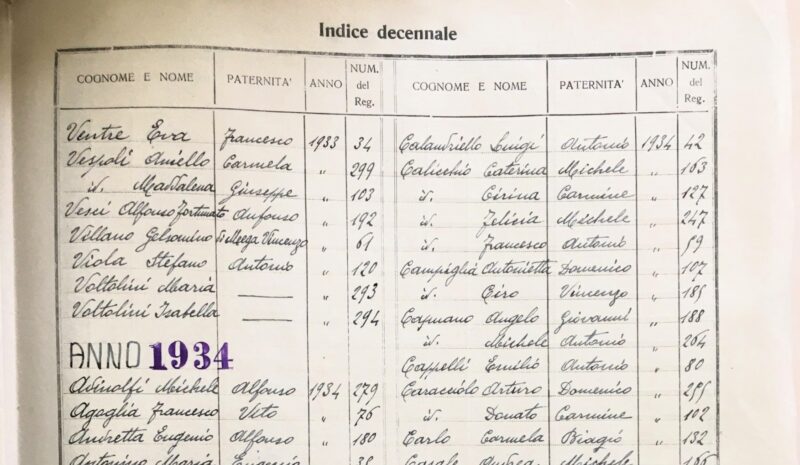 Indice decennale
COGNOME E NOME PATERNITA' ANNO NUM. del Reg.
Ventre Eva Francesco 1933 34
Vespoli Aniello Carmela „ 299
id. Maddalena Giuseppe „ 103
Vesci Alfonso Fortunato Anfonso „ 192
Villano Gelsomino Vincenzo „ 61
Viola Stefano Antonio „ 120
Voltolini Maria — „ 293
Voltolini Isabella — „ 294
ANNO 1934
Adinolfi Michele Alfonso 1934 279
Agaglia Francesco Vito „ 76
Andretta Eugenio Alfonso „ 180
Antonino Maria Eugenio „ 38
COGNOME E NOME PATERNITA' ANNO NUM. del Reg.
Calandriello Luigi Antonio 1934 42
Calicchio Caterina Michele „ 163
id. Cirina Carmine „ 127
id. Felicia Michele „ 247
id. Francesco Antonio „ 59
Campiglia Antonietta Domenico „ 107
id. Ciro Vincenzo „ 185
Capuano Angelo Giovanni „ 188
id. Michele Antonio „ 264
Cappelli Emilio Antonio „ 80
Caracciolo Arturo Domenico „ 255
id. Donato Carmine „ 102
Carlo Carmela Biagio „ 132
Casale Andrea Michele „